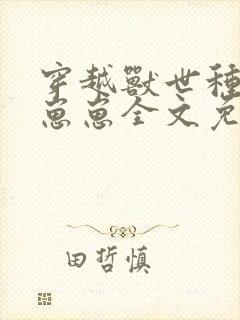 穿越獸世種
崽崽全文免
田哲慎